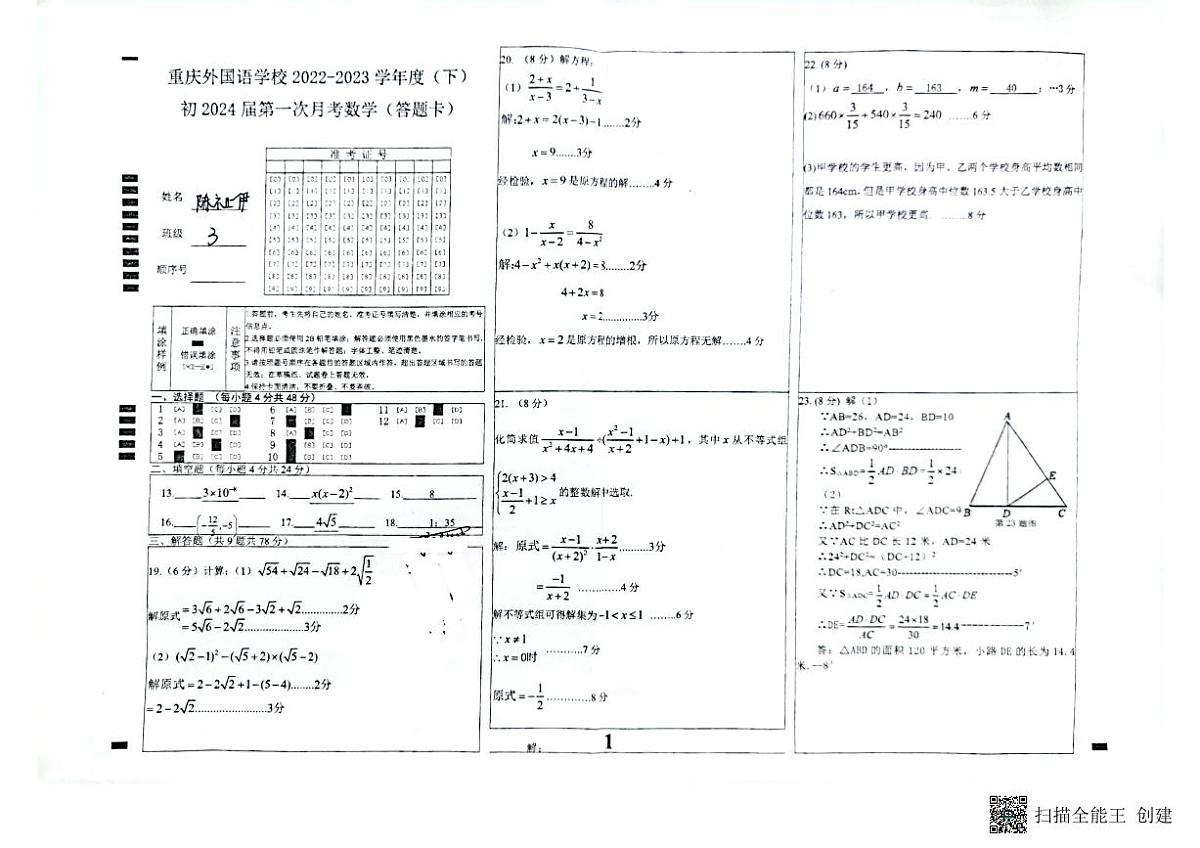 重庆外国语学校2022-2023学年度（下）
初2024届第一次月考数学（答题卡）
准考证号
[0] [0] [0] [0] [0] [0] [0] [0] [0] [0]
[1] [1] [1] [1] [1] [1] [1] [1] [1] [1]
[2] [2] [2] [2] [2] [2] [2] [2] [2] [2]
[3] [3] [3] [3] [3] [3] [3] [3] [3] [3]
[4] [4] [4] [4] [4] [4] [4] [4] [4] [4]
[5] [5] [5] [5] [5] [5] [5] [5] [5] [5]
[6] [6] [6] [6] [6] [6] [6] [6] [6] [6]
[7] [7] [7] [7] [7] [7] [7] [7] [7] [7]
[8] [8] [8] [8] [8] [8] [8] [8] [8] [8]
[9] [9] [9] [9] [9] [9] [9] [9] [9] [9]
姓名 陈
班级 3
顺序号
填涂样例
正确填涂
错误填涂
注意事项
1.答题前，考生先将自己的姓名、准考证号填写清楚，并填涂相应的考号信息点。
2.选择题必须使用2B铅笔填涂；解答题必须使用黑色墨水的签字笔书写，不得用铅笔或圆珠笔作解答题；字体工整、笔迹清楚。
3.请按照题号顺序在各题目的答题区域内作答，超出答题区域书写的答题无效；在草稿纸、试题卷上答题无效。
4.保持卡面清洁，不要折叠、不要弄破。
一、选择题 （每小题4分共48分）
1 [A] [C] [D] 6 [A] [B] [C] 11 [A] [B] [D]
2 [A] [B] [C] 7 [B] [C] [D] 12 [A] [C] [D]
3 [A] [C] [D] 8 [A] [C] [D]
4 [A] [B] [D] 9 [B] [C] [D]
5 [A] [C] [D] 10 [B] [C] [D]
二、填空题（每小题4分共24分）
13. 3×10⁻⁴ 14. x(x−2)² 15. 8
16. (−12/5,−5) 17. 4√5 18. 1：35
三、解答题（共9题共78分）
19.（6分）计算：（1）√54+√24−√18+2√(1/2)
解原式=3√6+2√6−3√2+√2.............2分
=5√6−2√2....................3分
（2）(√2−1)²−(√5+2)×(√5−2)
解原式=2−2√2+1−(5−4)........2分
=2−2√2........................3分
20. （8分）解方程：
（1）(2+x)/(x−3)=2+1/(3−x)
解:2+x=2(x−3)−1.......2分
x=9.......3分
经检验，x=9是原方程的解........4分
（2）1−x/(x−2)=8/(4−x²)
解:4−x²+x(x+2)=8........2分
4+2x=8
x=2.............3分
经检验，x=2是原方程的增根，所以原方程无解.......4分
21. （8分）
化简求值 (x−1)/(x²+4x+4)÷((x²−1)/(x+2)+1−x)+1，其中x从不等式组
{2(x+3)>4
(x−1)/2+1≥x 的整数解中选取.
解：原式=(x−1)/(x+2)²·(x+2)/(1−x)..........3分
=−1/(x+2) ............4分
解不等式组可得解集为−1<x≤1 ........6分
∵x≠1
∴x=0时 ...........7分
原式=−1/2.............8分
解：
1
22. (8分)
（1）a=164，b=163，m=40：…3分
(2)660×3/15+540×3/15=240 .......6分
(3)甲学校的学生更高，因为甲、乙两个学校身高平均数相同
都是164cm，但是甲学校身高中位数163.5大于乙学校身高中
位数163，所以甲学校更高. ........8分
23.(8分) 解（1）
∵AB=26，AD=24，BD=10
∴AD²+BD²=AB²
∴∠ADB=90°
∴S△ABD=1/2AD·BD=1/2×24
（2）
∵在Rt△ADC中，∠ADC=9
∴AD²+DC²=AC²
又∵AC比DC长12米，AD=24米
∴24²+DC²=（DC+12）²
∴DC=18,AC=30------------------------5'
又∵S△ADC=1/2AD·DC=1/2AC·DE
∴DE=AD·DC/AC=24×18/30=14.4-------------7'
答：△ABD的面积120平方米，小路DE的长为14.4
米.--8'
A
E
B
D
C
第23题图
扫描全能王 创建